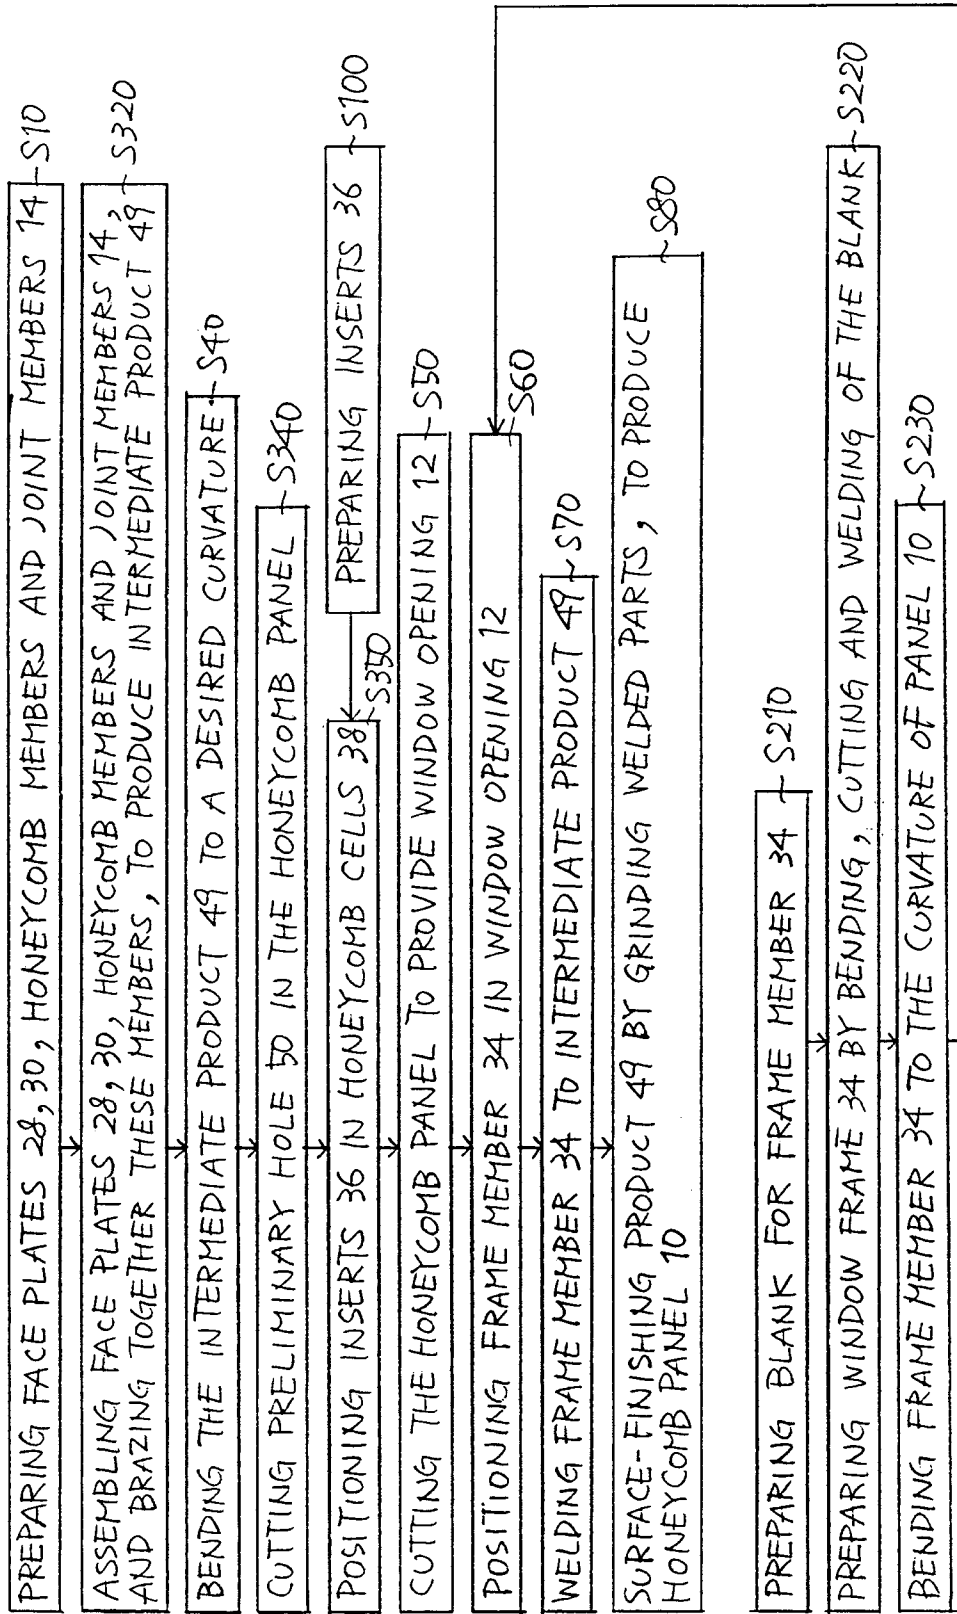 PREPARING FACE PLATES 28, 30, HONEYCOMB MEMBERS AND JOINT MEMBERS 14 ~S10
ASSEMBLING FACE PLATES 28, 30, HONEYCOMB MEMBERS AND JOINT MEMBERS 14, ~S320
AND BRAZING TOGETHER THESE MEMBERS, TO PRODUCE INTERMEDIATE PRODUCT 49
BENDING THE INTERMEDIATE PRODUCT 49 TO A DESIRED CURVATURE ~S40
CUTTING PRELIMINARY HOLE 50 IN THE HONEYCOMB PANEL ~S340
POSITIONING INSERTS 36 IN HONEYCOMB CELLS 38 ~S350
PREPARING INSERTS 36 ~S100
CUTTING THE HONEYCOMB PANEL TO PROVIDE WINDOW OPENING 12 ~S50
POSITIONING FRAME MEMBER 34 IN WINDOW OPENING 12 ~S60
WELDING FRAME MEMBER 34 TO INTERMEDIATE PRODUCT 49 ~S70
SURFACE-FINISHING PRODUCT 49 BY GRINDING WELDED PARTS, TO PRODUCE ~S80
HONEYCOMB PANEL 10
PREPARING BLANK FOR FRAME MEMBER 34 ~S210
PREPARING WINDOW FRAME 34 BY BENDING, CUTTING AND WELDING OF THE BLANK ~S220
BENDING FRAME MEMBER 34 TO THE CURVATURE OF PANEL 10 ~S230